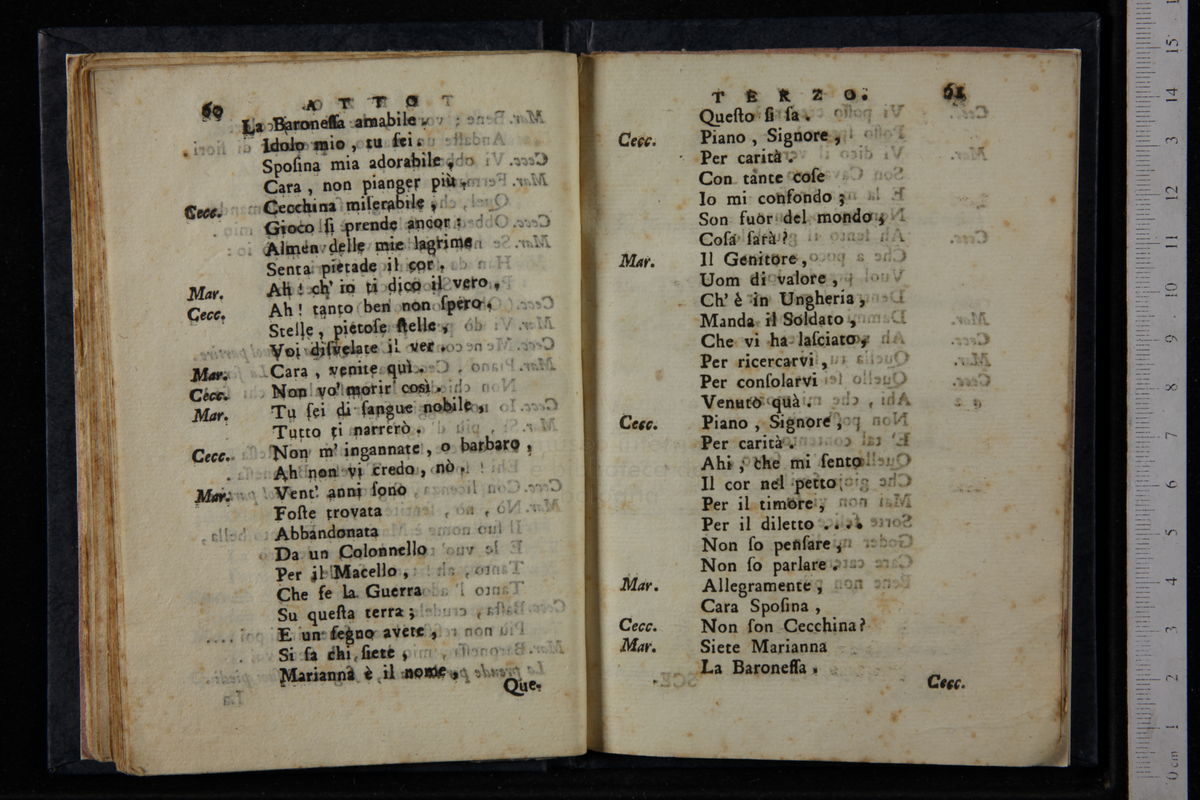 60 ATTO
La Baroneſſa amabile.
Idolo mio, tu ſei.
Spoſina mia adorabile,
Cara, non pianger più,
Cecc. Cecchina miſerabile,
Gioco ſi prende ancor:
Almen delle mie lagrime
Senta pietade il cor.
Mar. Ah! ch' io ti dico il vero,
Cecc. Ah! tanto ben non ſpero,
Stelle, pietoſe ſtelle,
Voi diſvelate il ver.
Mar. Cara, venite quì.
Cecc. Non vo' morir così.
Mar. Tu ſei di ſangue nobile,
Tutto ti narrerò.
Cecc. Non m' ingannate, o barbaro,
Ah non vi credo, nò.
Mar. Vent' anni ſono
Foſte trovata
Abbandonata
Da un Colonnello
Per il Macello,
Che fe la Guerra
Su queſta terra;
E un ſegno avete,
Si ſa chi ſiete,
Marianna è il nome,
Que-
TERZO. 61
Queſto ſi ſa.
Cecc. Piano, Signore,
Per carità.
Con tante coſe
Io mi confondo;
Son fuor del mondo;
Coſa ſarà?
Mar. Il Genitore,
Uom di valore,
Ch' è in Ungheria,
Manda il Soldato,
Che vi ha laſciato,
Per ricercarvi,
Per conſolarvi
Venuto quà.
Cecc. Piano, Signore,
Per carità.
Ahi, che mi ſento
Il cor nel petto
Per il timore,
Per il diletto ....
Non ſo penſare,
Non ſo parlare.
Mar. Allegramente,
Cara Spoſina,
Cecc. Non ſon Cecchina?
Mar. Siete Marianna
La Baroneſſa.
Cecc.
0 cm 1 2 3 4 5 6 7 8 9 10 11 12 13 14 15